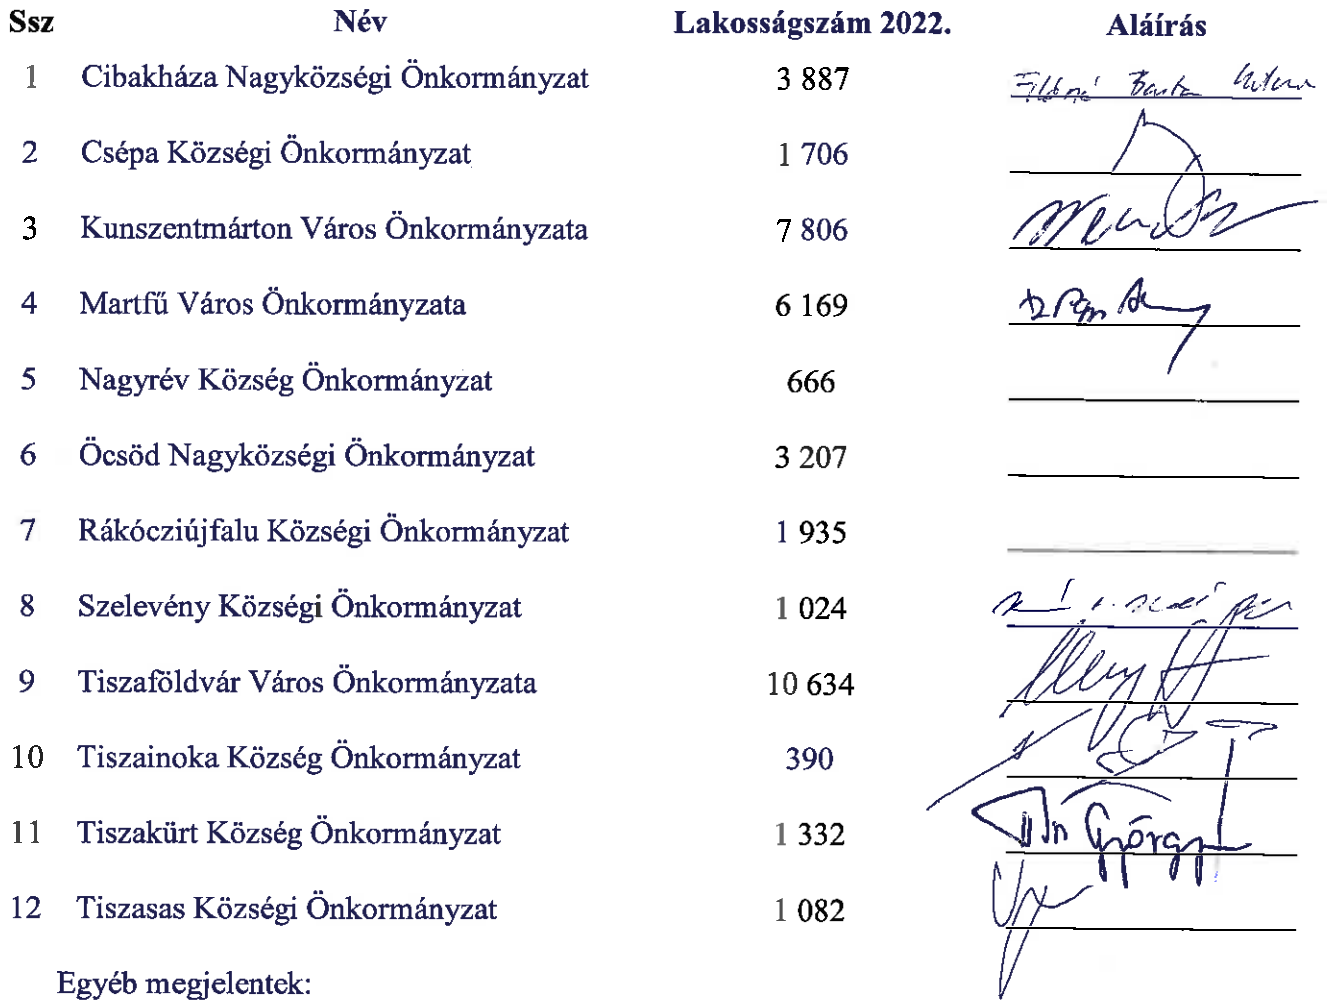 Ssz Név Lakosságszám 2022. Aláírás
1 Cibakháza Nagyközségi Önkormányzat 3 887
2 Csépa Községi Önkormányzat 1 706
3 Kunszentmárton Város Önkormányzata 7 806
4 Martfű Város Önkormányzata 6 169
5 Nagyrév Község Önkormányzat 666
6 Öcsöd Nagyközségi Önkormányzat 3 207
7 Rákócziújfalu Községi Önkormányzat 1 935
8 Szelevény Községi Önkormányzat 1 024
9 Tiszaföldvár Város Önkormányzata 10 634
10 Tiszainoka Község Önkormányzat 390
11 Tiszakürt Község Önkormányzat 1 332 György
12 Tiszasas Községi Önkormányzat 1 082
Egyéb megjelentek: